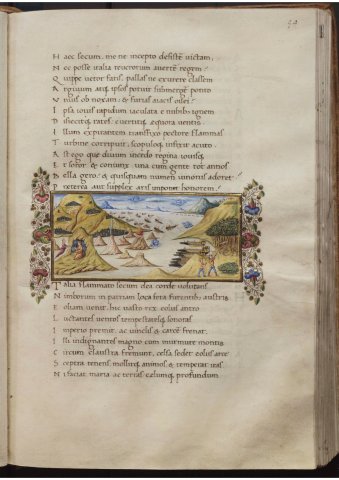 H aec secum. me ne incepto desistere victam.
N ec posse italia teucrorum avertere regem?
Q uippe vetor fatis. pallas ne exurere classem
A rgivum atq; ipsos potuit submergere ponto
V nius ob noxam: & furias aiacis oilei?
I psa iovis rapidum iaculata e nubib; ignem
D isiecitq; rates: evertitq; equora ventis.
I llum expirantem transfixo pectore flammas
T urbine corripuit: scopuloq; infixit acuto.
A st ego que divum incedo regina iovisq;
E t soror & coniunx una cum gente tot annos
B ella gero: & quisquam numen iunonis adoret
P reterea aut supplex aris imponat honorem?
T alia flammato secum dea corde volutans
N imborum in patriam loca feta furentib; austris
E oliam venit. hic vasto rex eolus antro
L uctantes ventos tempestatesq; sonoras
I mperio premit. ac vinclis & carcere frenat.
I lli indignantes magno cum murmure montis
C ircum claustra fremunt. celsa sedet eolus arce
S ceptra tenens. mollitq; animos & temperat iras
N i faciat maria ac terras celumq; profundum